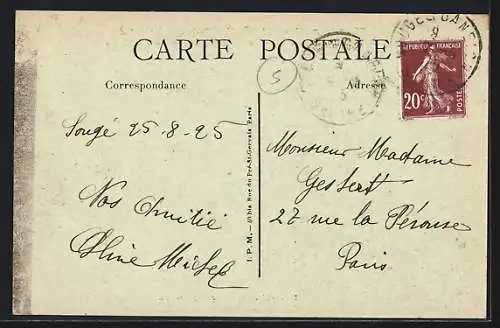 CARTE POSTALE
Correspondance
Adresse
RÉPUBLIQUE FRANÇAISE
20c
POSTES
S
Sougé 25-8-25
Nos Amitié
Aline Michel
I. P. M. — 40 bis Rue du Pré-St-Gervais Paris
Monsieur Madame
Gessert
27 rue la Pérouse
Paris